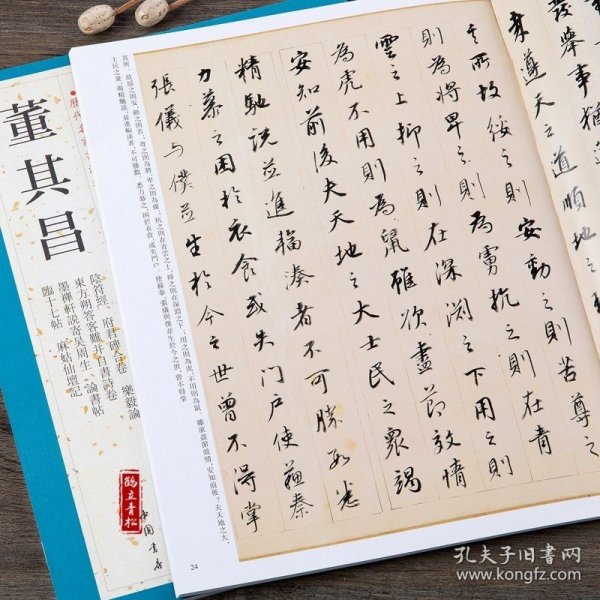 發舉事猶
哉遵天之道順地之
其所故綏之則安動之則苦尊之
則為將卑之則為虜抗之則在青
雲之上抑之則在深淵之下用之則
為虎不用則為鼠雖欲盡節效情
安知前後夫天地之大士民之衆竭
精馳說並進輻湊者不可勝數悉
力慕之困於衣食或失門戶使蘇秦
張儀與僕並生於今之世曾不得掌
其所，故綏之則安，動之則苦；尊之則為將，卑之則為虜；抗之則在青雲之上，抑之則在深淵之下；用之則為虎，不用則為鼠；雖欲盡節效情，安知前後？夫天地之大，
士民之衆，竭精馳說，並進輻湊者，不可勝數，悉力慕之，困於衣食，或失門戶。使蘇秦、張儀與僕並生於今之世，曾不得掌
24
歷代名家
董其昌
陰符經、府君碑合卷 樂毅論
東方朔答客難并自書詩卷
墨禪軒說寄吳周生 論書帖
臨十七帖 麻姑仙壇記
鶴立青松
中國書店
孔夫子旧书网
www.kongfz.com